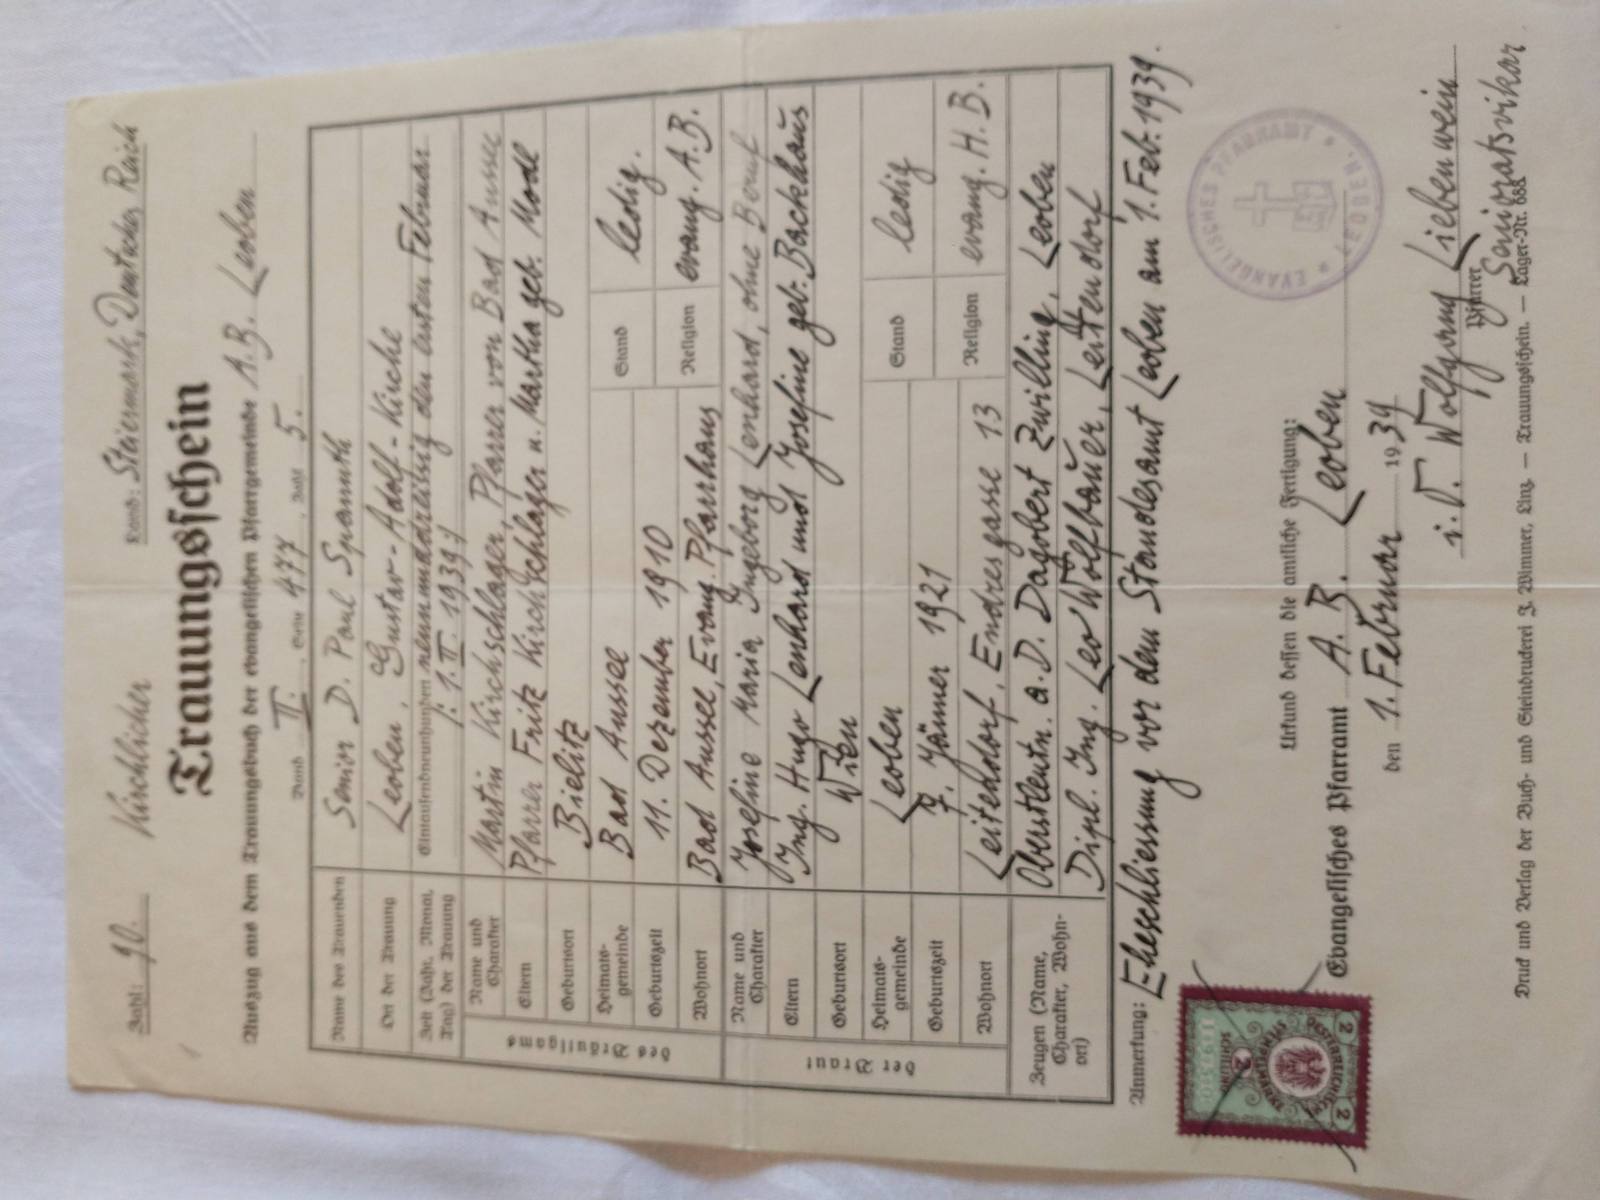 Zahl: 90. Kirchlicher Land: Steiermark, Deutsches Reich
Trauungsschein
Auszug aus dem Trauungsbuch der evangelischen Pfarrgemeinde A.B. Leoben
Band II., Seite 477, Zahl 5.
Name des Trauenden Senior D. Paul Spanuth
Ort der Trauung Leoben, Gustav-Adolf-Kirche
Zeit (Jahr, Monat, Tag) der Trauung Eintausendneunhundert neununddreissig den ersten Februar
/: 1. II. 1939 :/
des Bräutigams
Name und Charakter Martin Kirchschlager, Pfarrer von Bad Aussee
Eltern Pfarrer Fritz Kirchschlager u. Martha geb. Modl
Geburtsort Bielitz
Heimatsgemeinde Bad Aussee Stand ledig.
Geburtszeit 11. Dezember 1910
Wohnort Bad Aussee, Evang. Pfarrhaus Religion evang. A.B.
der Braut
Name und Charakter Josefine Maria Ingeborg Lenhard, ohne Beruf
Eltern Ing. Hugo Lenhard und Josefine geb. Backhaus
Geburtsort Wien
Heimatsgemeinde Leoben Stand ledig
Geburtszeit 7. Jänner 1921
Wohnort Leitendorf, Endresgasse 13 Religion evang. H.B.
Zeugen (Name, Charakter, Wohnort) Oberstleutn. a.D. Dagobert Zwilling, Leoben
Dipl. Ing. Leo Wolfbauer, Leitendorf
Anmerkung: Eheschliessung vor dem Standesamt Leoben am 1. Feb. 1939.
ÖSTERREICHISCHE STEMPELMARKE
2 SCHILLING
2 2
EVANGELISCHES PFARRAMT * LEOBEN *
Urkund dessen die amtliche Fertigung:
Evangelisches Pfarramt A. B. Leoben
den 1. Februar 1939
i. V. Wolfgang Liebenwein
Pfarrer
Senioratsvikar
Druck und Verlag der Buch- und Steindruckerei J. Wimmer, Linz. — Trauungsschein. — Lager-Nr. 688